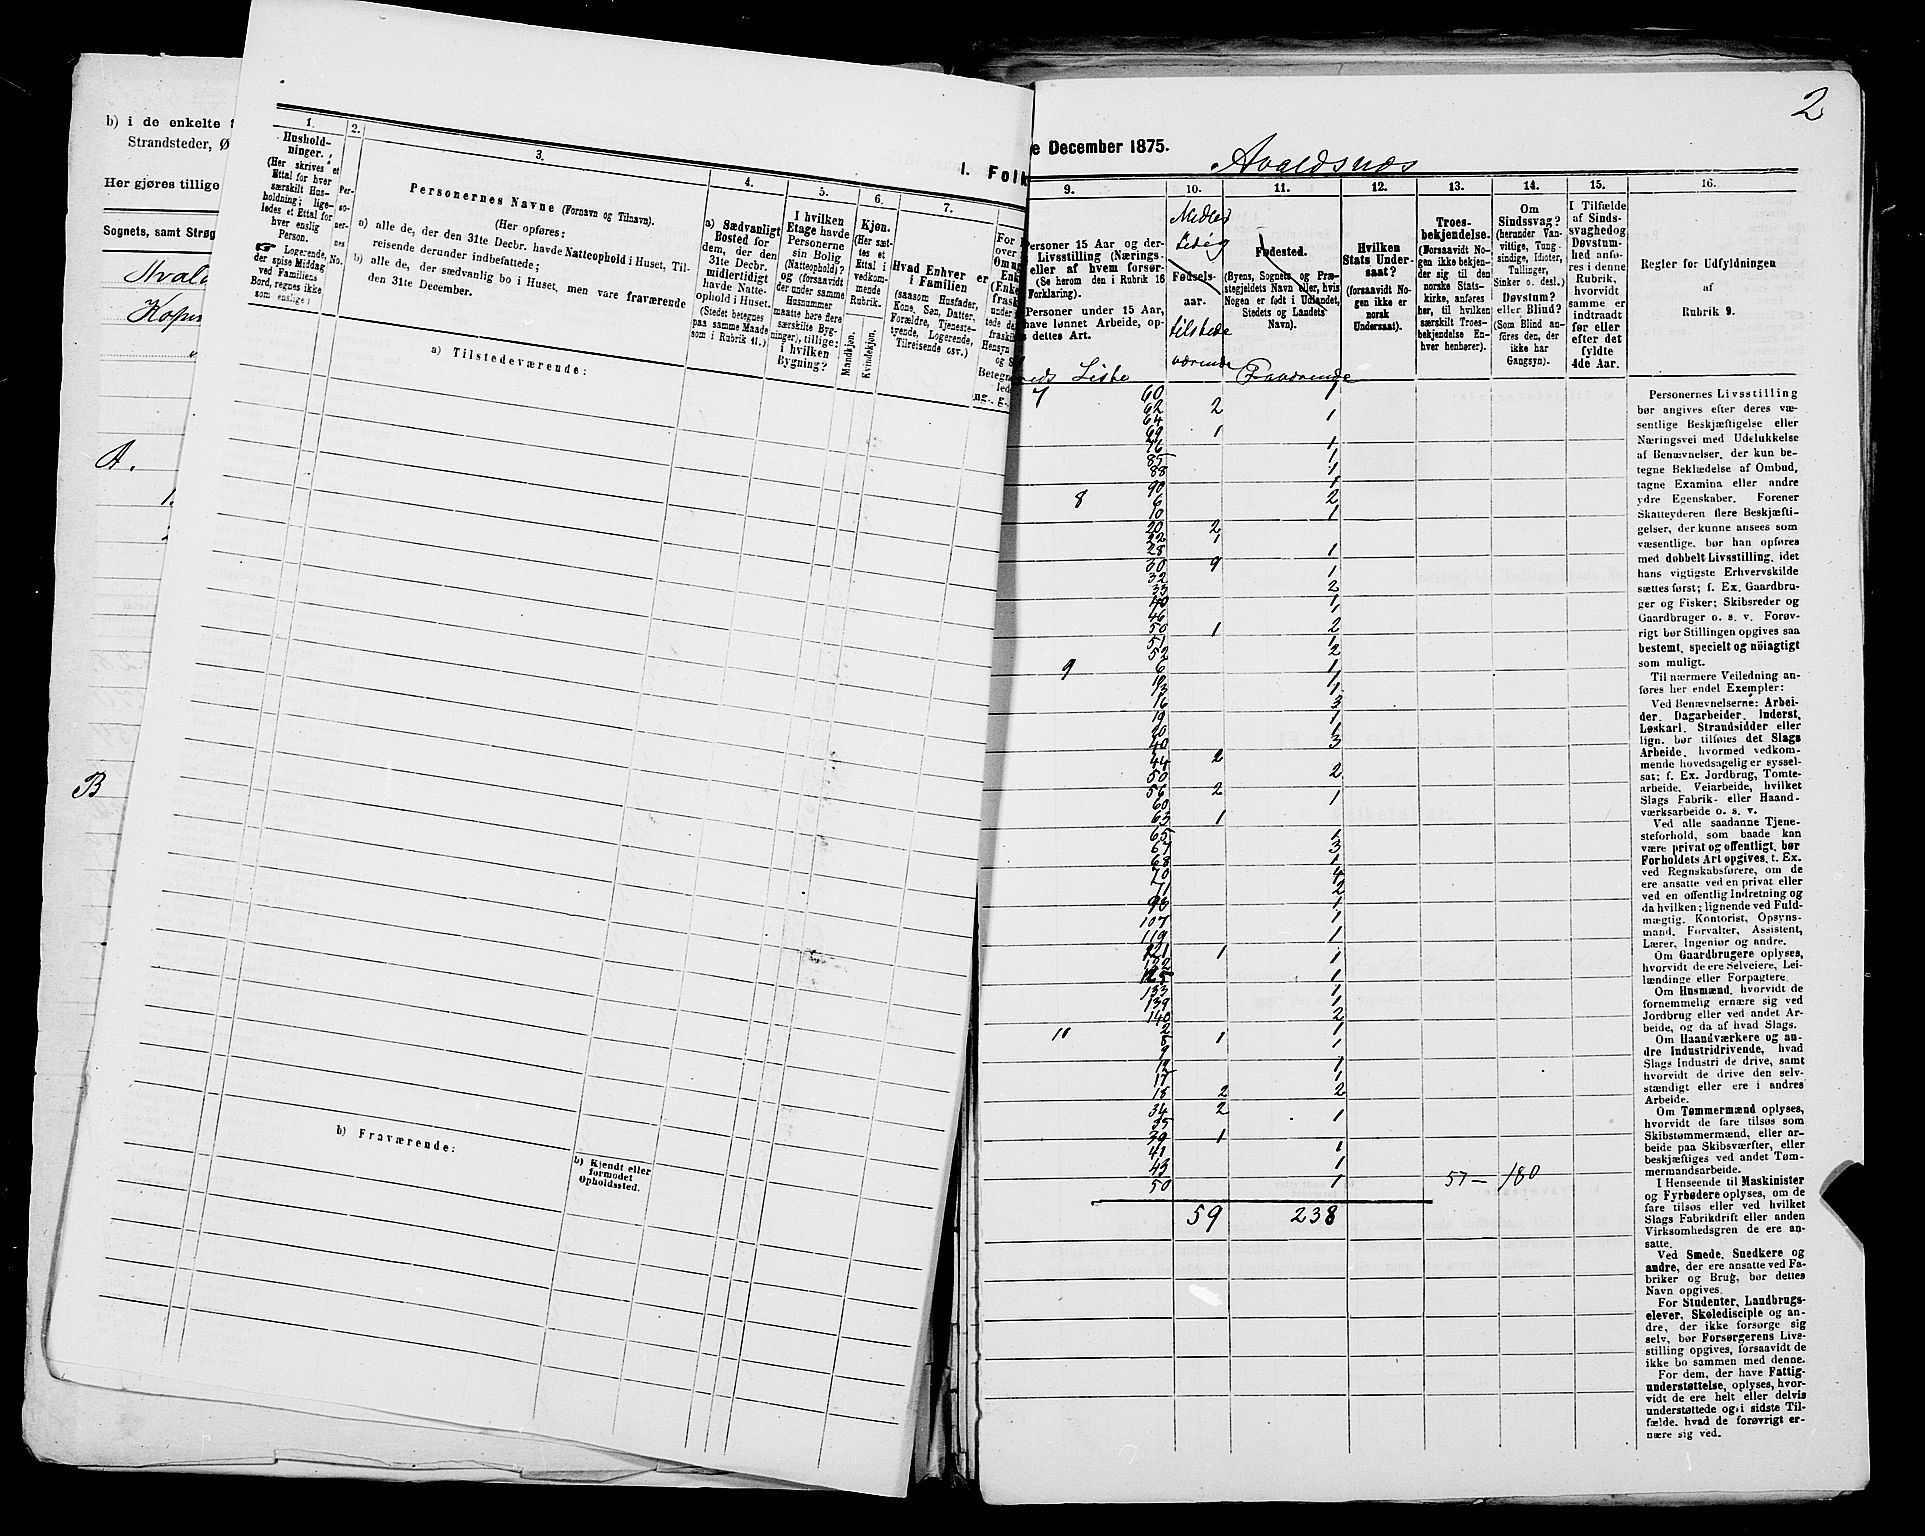 b) i de enkelte
Strandsteder, Ø
Her gjøres tillige
Sognets, samt Strøg
A.
B
1.
Hushold-
ninger.
(Her skrives et
Ettal for hver
særskilt Hus-
holdning; lige-
ledes et Ettal for
hver enslig
Person.
☞ Logerende,
der spise Middag
ved Familiens
Bord, regnes ikke
som enslige.)
2.
Per-
so-
ner-
nes
No.
3.
Personernes Navne (Fornavn og Tilnavn).
(Her opføres:
a) alle de, der den 31te Decbr. havde Natteophold i Huset, Til-
reisende derunder indbefattede;
b) alle de, der sædvanlig bo i Huset, men vare fraværende
den 31te December.
a) Tilstedeværende:
4.
a) Sædvanligt
Bosted for
dem, der den
31te Decbr.
midlertidigt
havde Natte-
ophold i Huset.
(Stedet betegnes
paa samme Maade
som i Rubrik 11.)
5.
I hvilken
Etage havde
Personerne
sin Bolig
(Natteophold)?
og (forsaavidt
der under samme
Husnummer
maatte høre flere
særskilte Byg-
ninger), tillige:
i hvilken
Bygning?
6.
Kjøn.
(Her sæt-
tes et
Ettal i
vedkom-
mende
Rubrik.
Mandkjøn.
Kvindekjøn.
7.
Hvad Enhver er
i Familien
(saasom Husfader,
Kone, Søn, Datter,
Forældre, Tjeneste-
tyende, Logerende,
Tilreisende osv.)
b) Fraværende:
b) Kjendt eller
formodet
Opholdssted.
1. Folk
2
December 1875.
Avaldsnæs
9.
Personer 15 Aar og der-
Livsstilling (Nærings-
eller af hvem forsør-
(Se herom den i Rubrik 16
Forklaring).
Personer under 15 Aar,
have lønnet Arbeide, op-
dettes Art.
Liste
10.
Fødsels-
aar.
tilstede
værende
11.
Fødested.
(Byens, Sognets og Præ-
stegjeldets Navn eller, hvis
Nogen er født i Udlandet,
Stedets og Landets
Navn).
Fraværende
12.
Hvilken
Stats Under-
saat?
(forsaavidt No-
gen ikke er
norsk
Undersaat).
13.
Troes-
bekjendelse.
(Forsaavidt No-
gen ikke bekjen-
der sig til den
norske Stats-
kirke, anføres
her, til hvilken
særskilt Troes-
bekjendelse En-
hver henhører).
14.
Om
Sindssvag?
(herunder Van-
vittige, Tung-
sindige, Idioter,
Tullinger,
Sinker o. desl.)
Døvstum?
eller Blind?
(Som Blind an-
føres den, der
ikke har
Gangsyn).
15.
I Tilfælde
af Sinds-
svaghed og
Døvstum-
hed anfø-
res i denne
Rubrik,
hvorvidt
samme er
indtraadt
før eller
efter det
fyldte
4de Aar.
16.
Regler for Udfyldningen
af
Rubrik 9.
7 60 1
62 2
64 1
69 1
76 1
85 1
88 1
90 1
8 6 2
10 1
20 2
22 1
28 1
30 9
32 1
33 2
40 1
46 1
50 1 2
51 1
52 2
9 6 1
16 3
19 1
20 1
40 3
44 2
50 2
56 2
60 1
63 1
65 1
67 3
68 1
70 4
71 2
93 1
107 1
119 1
121 1
122 1
133 1
139 1
140 2
10 2 1
8 1
9 1
12 1
17 1
18 2 2
34 2 1
35
39 1
41 1
43 1
50 1
57 - 180
59 238
Personernes Livsstilling
bør angives efter deres væ-
sentlige Beskjæftigelse eller
Næringsvei med Udelukkelse
af Benævnelser, der kun be-
tegne Beklædelse af Ombud,
tagne Examina eller andre
ydre Egenskaber. Forener
Skatteyderen flere Beskjæfti-
gelser, der kunne ansees som
væsentlige, bør han opføres
med dobbelt Livsstilling, idet
hans vigtigste Erhvervskilde
sættes først; f. Ex. Gaardbru-
ger og Fisker; Skibsreder og
Gaardbruger o. s. v. Forøv-
rigt bør Stillingen opgives saa
bestemt, specielt og nöiagtigt
som muligt.
Til nærmere Veiledning an-
føres her endel Exempler:
Ved Benævnelserne: Arbei-
der, Dagarbeider, Inderst,
Løskarl, Strandsidder eller
lign. bør tilføies det Slags
Arbeide, hvormed vedkom-
mende hovedsagelig er syssel-
sat; f. Ex. Jordbrug, Tomte-
arbeide, Veiarbeide, hvilket
Slags Fabrik- eller Haand-
værksarbeide o. s. v.
Ved alle saadanne Tjene-
steforhold, som baade kan
være privat og offentligt, bør
Forholdets Art opgives, t. Ex.
ved Regnskabsførere, om de
ere ansatte ved en privat eller
ved en offentlig Indretning og
da hvilken; lignende ved Fuld-
mægtig, Kontorist, Opsyns-
mand, Forvalter, Assistent,
Lærer, Ingeniør og andre.
Om Gaardbrugere oplyses,
hvorvidt de ere Selveiere, Lei-
lændinge eller Forpagtere.
Om Husmænd, hvorvidt de
fornemmelig ernære sig ved
Jordbrug eller ved andet Ar-
beide, og da af hvad Slags.
Om Haandværkere og an-
dre Industridrivende, hvad
Slags Industri de drive, samt
hvorvidt de drive den selv-
stændigt eller ere i andres
Arbeide.
Om Tømmermænd oplyses,
hvorvidt de fare tilsøs som
Skibstømmermænd, eller ar-
beide paa Skibsværfter, eller
beskjæftiges ved andet Tøm-
mermandsarbeide.
I Henseende til Maskinister
og Fyrbødere oplyses, om de
fare tilsøs eller ved hvilket
Slags Fabrikdrift eller anden
Virksomhedsgren de ere an-
satte.
Ved Smede, Snedkere og
andre, der ere ansatte ved Fa-
briker og Brug, bør dettes
Navn opgives.
For Studenter, Landbrugs-
elever, Skoledisciple og an-
dre, der ikke forsørge sig
selv, bør Forsørgerens Livs-
stilling opgives, forsaavidt de
ikke bo sammen med denne.
For dem, der have Fattig-
understøttelse, oplyses, hvor-
vidt de ere helt eller delvis
understøttede og i sidste Til-
fælde, hvad de forøvrigt er-
nære sig ved.